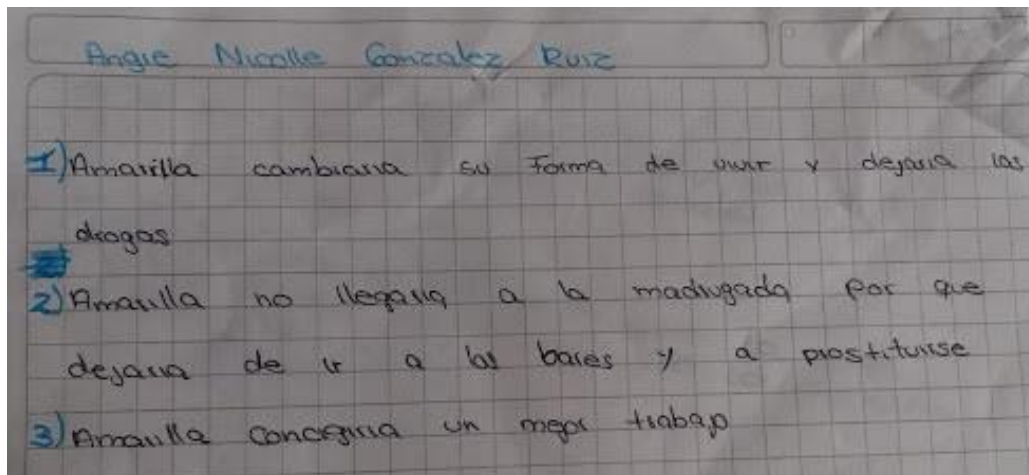 Angie Nicolle Gonzalez Ruiz
1) Amarilla cambiaria su forma de vivir y dejaria las
drogas
2) Amarilla no llegaria a la madrugada por que
dejaria de ir a los bares y a prostituirse
3) Amarilla concegiria un mejor trabajo